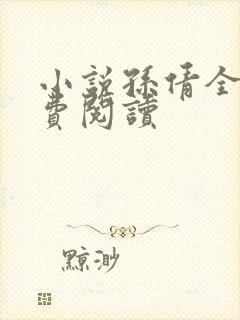 小說孫倩全
費閱讀
黥渺